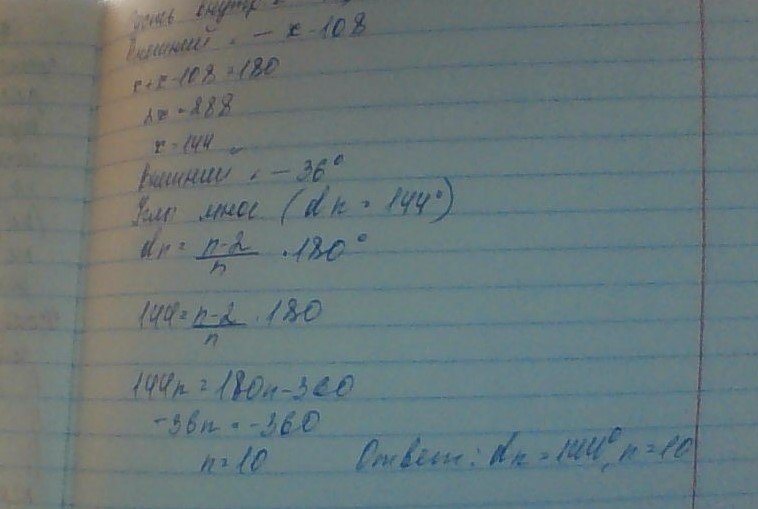 Пусть внутр
Внешний ∠ – x-108
x+x-108=180
2x=288
x=144
Внешний ∠ – 36°
Угол мног (αn = 144°)
αn = n-2/n · 180°
144 = n-2/n · 180
144n = 180n-360
-36n = -360
n=10
Ответ: αn = 144°, n=10